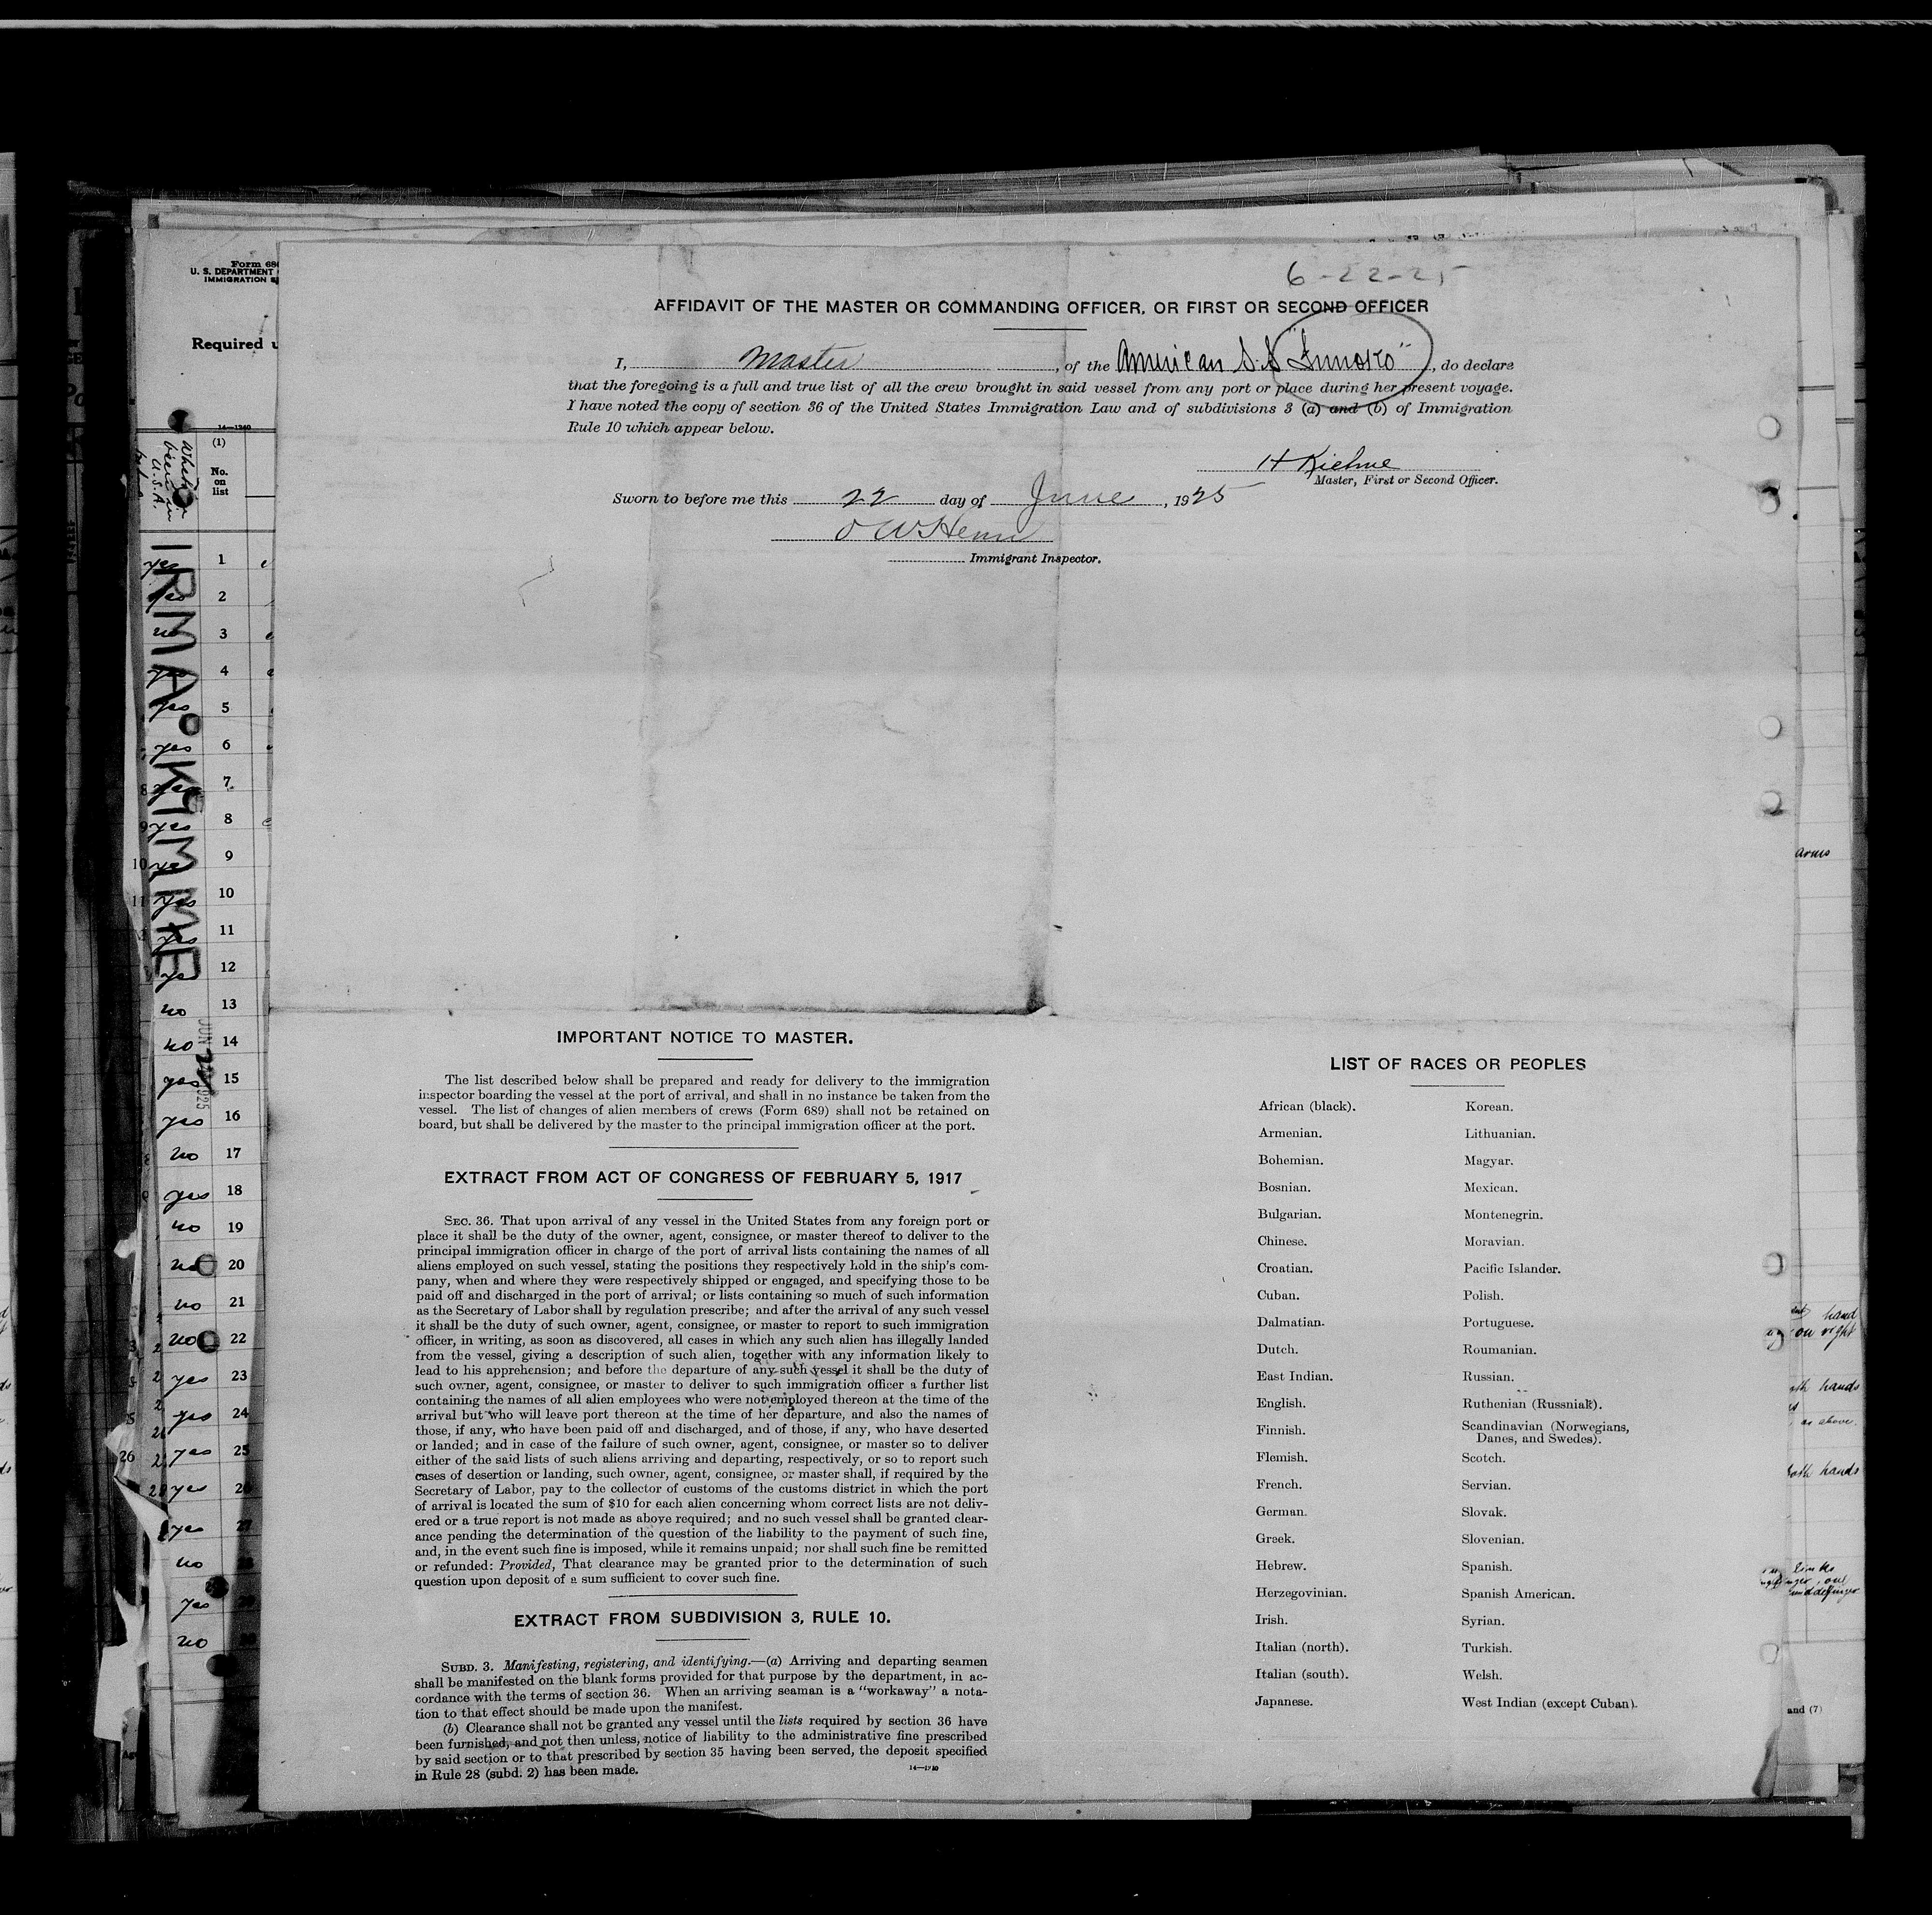 6-22-25
AFFIDAVIT OF THE MASTER OR COMMANDING OFFICER, OR FIRST OR SECOND OFFICER
I, Master, of the American S.S , do declare
that the foregoing is a full and true list of all the crew brought in said vessel from any port or place during her present voyage.
I have noted the copy of section 36 of the United States Immigration Law and of subdivisions 3 (a) and (b) of Immigration
Rule 10 which appear below.
H
Master, First or Second Officer.
Sworn to before me this 22 day of June, 1925
Immigrant Inspector.
IMPORTANT NOTICE TO MASTER.
The list described below shall be prepared and ready for delivery to the immigration
inspector boarding the vessel at the port of arrival, and shall in no instance be taken from the
vessel. The list of changes of alien members of crews (Form 689) shall not be retained on
board, but shall be delivered by the master to the principal immigration officer at the port.
EXTRACT FROM ACT OF CONGRESS OF FEBRUARY 5, 1917
SEC. 36. That upon arrival of any vessel in the United States from any foreign port or
place it shall be the duty of the owner, agent, consignee, or master thereof to deliver to the
principal immigration officer in charge of the port of arrival lists containing the names of all
aliens employed on such vessel, stating the positions they respectively hold in the ship's com-
pany, when and where they were respectively shipped or engaged, and specifying those to be
paid off and discharged in the port of arrival; or lists containing so much of such information
as the Secretary of Labor shall by regulation prescribe; and after the arrival of any such vessel
it shall be the duty of such owner, agent, consignee, or master to report to such immigration
officer, in writing, as soon as discovered, all cases in which any such alien has illegally landed
from the vessel, giving a description of such alien, together with any information likely to
lead to his apprehension; and before the departure of any such vessel it shall be the duty of
such owner, agent, consignee, or master to deliver to such immigration officer a further list
containing the names of all alien employees who were not employed thereon at the time of the
arrival but who will leave port thereon at the time of her departure, and also the names of
those, if any, who have been paid off and discharged, and of those, if any, who have deserted
or landed; and in case of the failure of such owner, agent, consignee, or master so to deliver
either of the said lists of such aliens arriving and departing, respectively, or so to report such
cases of desertion or landing, such owner, agent, consignee, or master shall, if required by the
Secretary of Labor, pay to the collector of customs of the customs district in which the port
of arrival is located the sum of $10 for each alien concerning whom correct lists are not deliv-
ered or a true report is not made as above required; and no such vessel shall be granted clear-
ance pending the determination of the question of the liability to the payment of such fine,
and, in the event such fine is imposed, while it remains unpaid; nor shall such fine be remitted
or refunded: Provided, That clearance may be granted prior to the determination of such
question upon deposit of a sum sufficient to cover such fine.
EXTRACT FROM SUBDIVISION 3, RULE 10.
SUBD. 3. Manifesting, registering, and identifying.—(a) Arriving and departing seamen
shall be manifested on the blank forms provided for that purpose by the department, in ac-
cordance with the terms of section 36. When an arriving seaman is a "workaway" a nota-
tion to that effect should be made upon the manifest.
(b) Clearance shall not be granted any vessel until the lists required by section 36 have
been furnished, and not then unless, notice of liability to the administrative fine prescribed
by said section or to that prescribed by section 35 having been served, the deposit specified
in Rule 28 (subd. 2) has been made.
LIST OF RACES OR PEOPLES
African (black). Korean.
Armenian. Lithuanian.
Bohemian. Magyar.
Bosnian. Mexican.
Bulgarian. Montenegrin.
Chinese. Moravian.
Croatian. Pacific Islander.
Cuban. Polish.
Dalmatian. Portuguese.
Dutch. Roumanian.
East Indian. Russian.
English. Ruthenian (Russniak).
Finnish. Scandinavian (Norwegians,
Danes, and Swedes).
Flemish. Scotch.
French. Servian.
German. Slovak.
Greek. Slovenian.
Hebrew. Spanish.
Herzegovinian. Spanish American.
Irish. Syrian.
Italian (north). Turkish.
Italian (south). Welsh.
Japanese. West Indian (except Cuban).
U. S. DEPARTMENT
IMMIGRATION
Required
14—1240
(1)
No.
on
list
IRMA KIMME
yes 1
yes 2
no 3
yes 4
yes 5
yes 6
yes 7
yes 8
yes 9
yes 10
yes 11
yes 12
no 13
no 14
yes 15
yes 16
no 17
yes 18
no 19
no 20
no 21
no 22
yes 23
yes 24
yes 25
yes 26
yes 27
no
yes
no
arms
hand
on right
hands
as above
both hands
and (7)